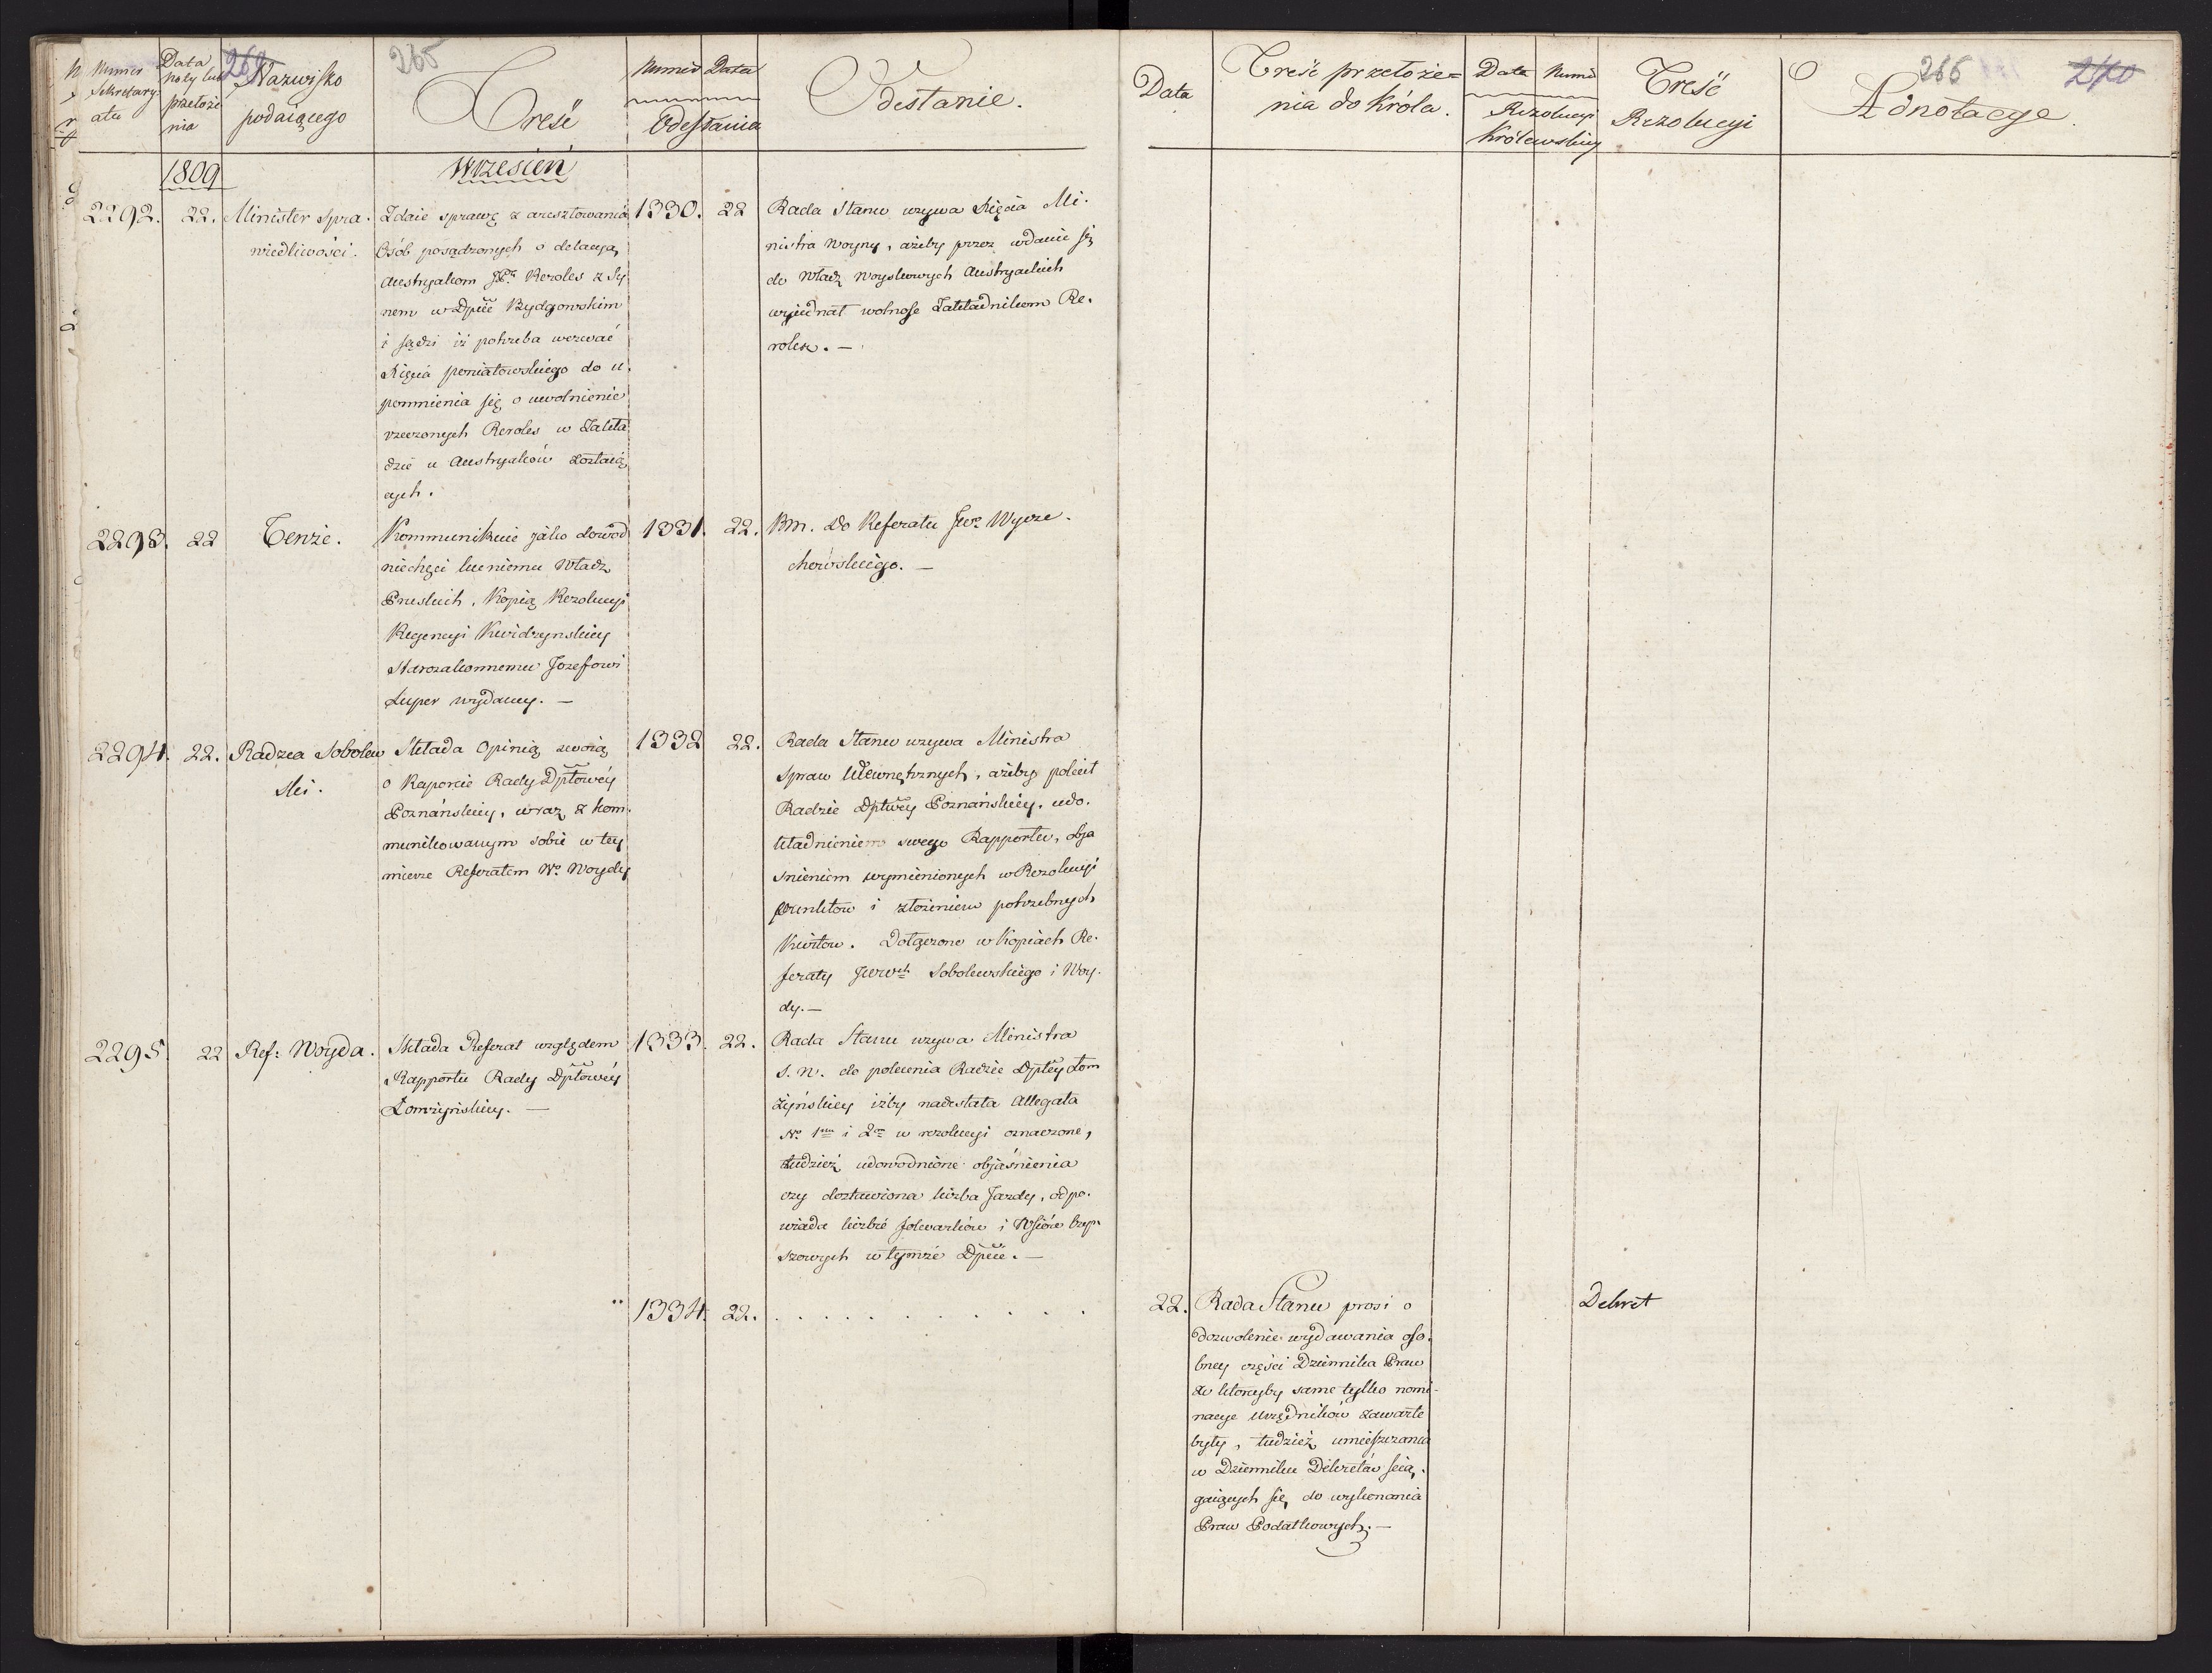 Numer
Sekretary-
atu
Data
noty lub
przełoże
nia
Nazwisko
podaiącego
265
Treść
Numer Data
Odesłania
Odesłanie.
Data
Treść przełoże=
nia do Króla.
Data Numer
Rezolucyi
Królewskiey
Treść
Rezolucyi
266
270
Adnotacye.
1809
Wrzesień
2292. 22. Minister Spra-
wiedliwości.
Zdaie sprawę z aresztowania
Osób posądzonych o delacyą
Austryakom JP. Reroles z Sy
nem w Dpcie Bydgowskim
i sądzi iż potrzeba wezwać
Xięcia poniatowskiego do u.
pomnienia się o uwolnienie
rzeczonych Reroles w Zakła
dzie u Austryaków zostaią
cych.
1330. 22
Rada Stanu wzywa Xięcia Mi-
nistra Woyny, ażeby przez udanie się
do Władz Woyskowych Austryackich
wyiednał wolność Zakładnikom Re-
roles. —
2293. 22 Tenże.
Kommunikuie jako dowód
niechęci ku niemu Władz
Pruskich, Kopią Rezolucyi
Regencyi Kwidzynskiey
Starozakonnemu Jozefowi
Luper wydaney. —
1331. 22.
Bm. Do Referatu Jwo Wycze-
chowskiego. —
2294. 22. Radzca Sobolew
ski.
Składa Opinią swoią
o Raporcie Rady Dptowéy
Poznańskiey, wraz z kom-
munikowanym sobie w tey
mierze Referatem Wo Woydy
1332 22.
Rada Stanu wzywa Ministra
Spraw Wewnętrznych, ażeby polecił
Radzie Dptwéy Poznańskiéy, udo-
kładnieniem swego Rapportu, obja
snieniem wymienionych w Rezolucyi
punktow i złożeniem potrzebnych
Kwitow. Dołączone w Kopiach Re-
feraty Jwwch Sobolewskiego i Woy-
dy. —
2295. 22 Ref: Woyda.
Składa Referat względem
Rapportu Rady Dptowéy
Łomżyńskiey. —
1333. 22.
Rada Stanu wzywa Ministra
S. W. do polecenia Radzie Dptéy Łom
żyńskiey iżby nadesłała Allegata
No 1um i 2um w rezolucyi oznaczone,
tudzież udowodnione objaśnienia
czy dostawiona liczba Jazdy, odpo-
wiada liczbie folwarków i Wsiów
szowych w tymże Dpcie. —
1334. 22. . . . . . . . . . .
22. Rada Stanu prosi o
dozwolenie wydawania oso-
bney części Dziennika Praw
w któreyby same tylko nomi-
nacye Urzędników zawarte
były, tudzież umieszczania
w Dzienniku Dekretów ścią-
gaiących się do wykonania
Praw Podatkowych. —
Dekret